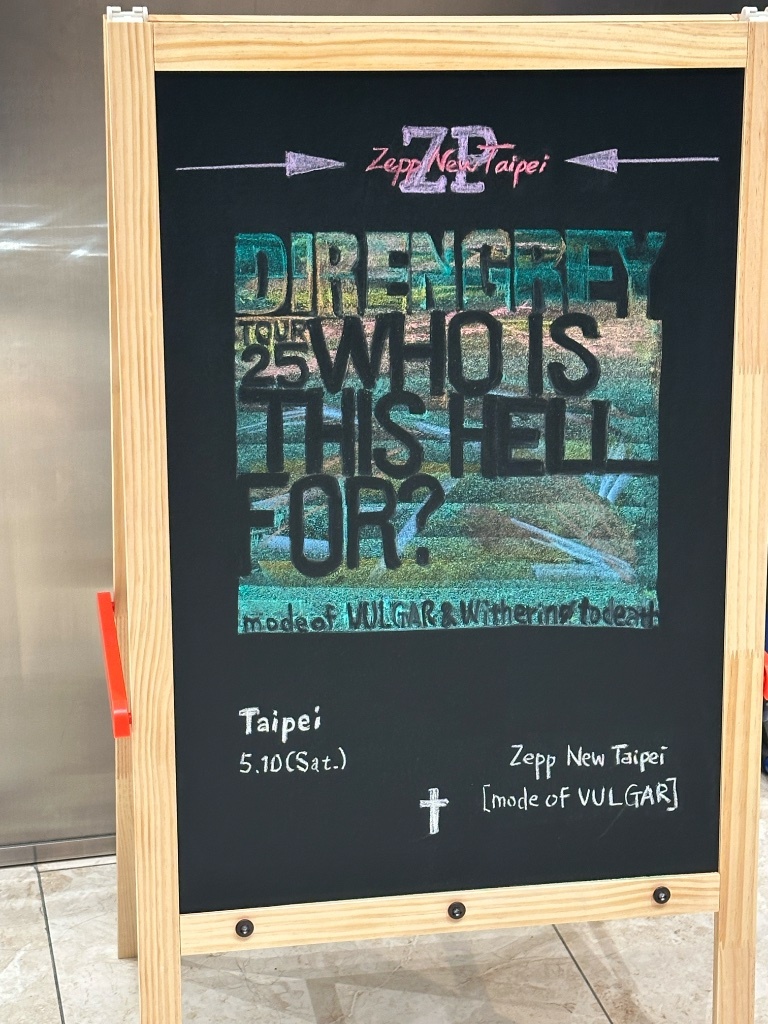 ZP
Zepp New Taipei
DIRENGREY
TOUR
25 WHO IS
THIS HELL
FOR?
mode of VULGAR & Withering to death
Taipei
5.10(Sat.)
Zepp New Taipei
[mode of VULGAR]